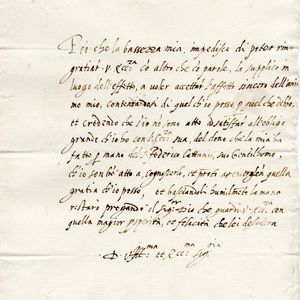 Poi che la bassezza mia, impedisce di poter rin
gratiar V. Ecc.za cō altro che cō parole, la supplico in
luogo dell'effetto, a voler accettar l'affetto sincero dell'ani
mo mio, contentandosi di quel ch'io posso p quel che debbo,
et credendo che s'io nō sono atto a satisfar all'obligo
grande ch'io ho con sua, del dono che la mi ha
fatto p mano del Federico Cattaneo, suo Gentilhomo,
ch'io son bē atto a cognoscerlo, et quella
gratia ch'io posso, et basciandoli humilmēte la mano
restarò pregando il Dio che guardi V. Ecc.za con
quella maggior prosperità, et felicità che lei desidera
D. V. Ill.ma et Ecc.ma Sig.ria